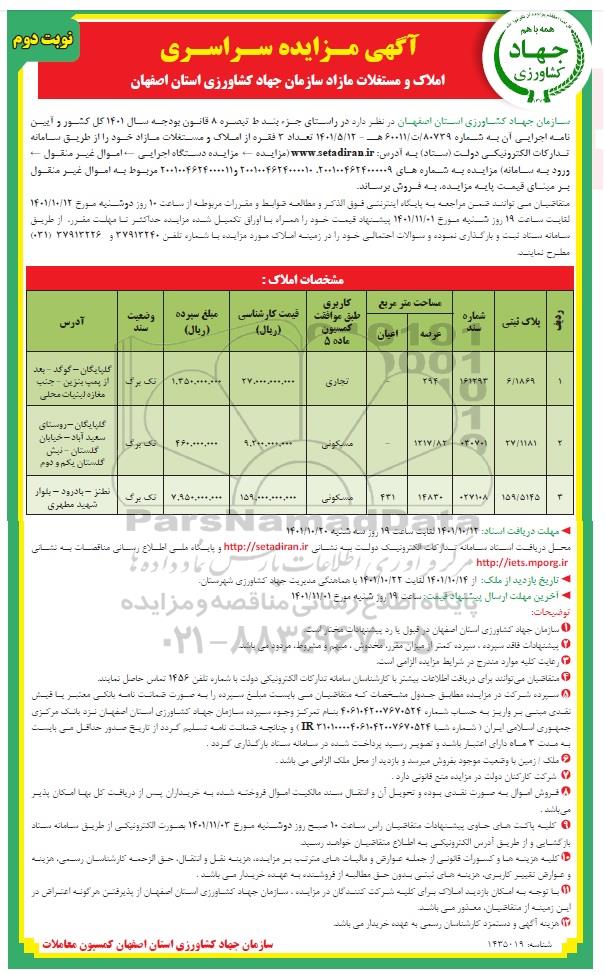 نوبت دوم
آگهی مـزایده سـراسـری
املاک و مستغلات مازاد سازمان جهاد کشاورزی استان اصفهان
همه با هم
جهاد
کشاورزی
سـازمان جهـاد کشـاورزی اسـتان اصفهـان در نظـر دارد در راسـتای جـزء بنـد ط تبصـره ۸ قانـون بودجـه سـال ۱۴۰۱ کل کشـور و آییـن
نامـه اجرایـی آن بـه شـماره ۸۰۷۳۹/ت/۶۰۰۱۱ هـ - ۱۴۰۱/۵/۱۲ تعـداد ۳ فقـره از امـلاک و مسـتغلات مـازاد خـود را از طریـق سـامانه
تـدارکات الکترونیکـی دولـت (سـتاد) بـه آدرس: www.setadiran.ir (مزایده ← مزایده دسـتگاه اجرایـی ← امـوال غیـر منقـول ←
ورود بـه سـامانه) مزایـده بـه شـماره هـای ۲۰۰۱۰۰۴۶۲۴۰۰۰۰۰۹، ۲۰۰۱۰۰۴۶۲۴۰۰۰۰۱۰ و ۲۰۰۱۰۰۴۶۲۴۰۰۰۰۱۱ مربـوط بـه امـوال غیـر منقـول
بـر مبنـای قیمـت پایـه مزایـده، بـه فـروش برسـاند.
متقاضیـان مـی تواننـد ضمـن مراجعـه بـه پایـگاه اینترنتـی فـوق الذکـر و مطالعـه ضوابـط و مقـررات مربوطـه از سـاعت ۱۰ روز دوشـنبه مـورخ ۱۴۰۱/۱۰/۱۲
لغایـت سـاعت ۱۹ روز شـنبه مـورخ ۱۴۰۱/۱۱/۰۱ پیشـنهاد قیمـت خـود را همـراه بـا اوراق تکمیـل شـده مزایـده حداکثـر تـا مهلـت مقـرر، از طریـق
سـامانه سـتاد ثبـت و بارگـذاری نمـوده و سـوالات احتمالـی خـود را در زمینـه امـلاک مـورد مزایـده بـا شـماره تلفـن ۳۷۹۱۳۲۴۰ و ۳۷۹۱۳۲۲۶ (۰۳۱)
مطـرح نماینـد.
مشخصات املاک :
ردیف | پلاک ثبتی | شماره سند | مساحت متر مربع عرصه | اعیان | کاربری طبق موافقت کمسیون ماده ۵ | قیمت کارشناسی (ریال) | مبلغ سپرده (ریال) | وضعیت سند | آدرس
۱ | ۶/۱۸۶۹ | ۱۶۱۲۹۳ | ۲۹۴ | - | تجاری | ۲۷,۰۰۰,۰۰۰,۰۰۰ | ۱,۳۵۰,۰۰۰,۰۰۰ | تک برگ | گلپایگان – گوگد – بعد از پمپ بنزین – جنب مغازه لبنیات محلی
۲ | ۲۷/۱۱۸۱ | ۰۳۰۷۰۱ | ۱۲۱۷/۸۲ | - | مسکونی | ۹,۲۰۰,۰۰۰,۰۰۰ | ۴۶۰,۰۰۰,۰۰۰ | تک برگ | گلپایگان – روستای سعید آباد – خیابان گلستان – نبش گلستان یکم و دوم
۳ | ۱۵۹/۵۱۴۵ | ۰۲۷۱۰۸ | ۱۴۸۳۰ | ۴۳۱ | مسکونی | ۱۵۹,۰۰۰,۰۰۰,۰۰۰ | ۷,۹۵۰,۰۰۰,۰۰۰ | تک برگ | نطنز – بادرود – بلوار شهید مطهری
◄ مهلت دریافت اسناد: ۱۴۰۱/۱۰/۱۲ لغایت ساعت ۱۹ روز سه شنبه ۱۴۰۱/۱۰/۲۰
محـل دریافـت اسـناد سـامانه تـدارکات الکترونیـک دولـت بـه نشـانی http://setadiran.ir و پایگاه ملـی اطـلاع رسـانی مناقصـات بـه نشـانی
http://iets.mporg.ir
◄ تاریخ بازدید از ملک: از ۱۴۰۱/۱۰/۱۴ لغایت ۱۴۰۱/۱۰/۲۲ با هماهنگی مدیریت جهاد کشاورزی شهرستان.
◄ آخرین مهلت ارسال پیشنهاد قیمت: ساعت ۱۹ روز شنبه مورخ ۱۴۰۱/۱۱/۰۱
توضیحات:
۱ سازمان جهاد کشاورزی استان اصفهان در قبول یا رد پیشنهادات مختار است.
۲ پیشنهادات فاقد سپرده ، سپرده کمتر از میزان مقرر، مخدوش ، مبهم و مشروط، مردود می باشد.
۳ رعایت کلیه موارد مندرج در شرایط مزایده الزامی است.
۴ متقاضیان می‌توانند برای دریافت اطلاعات بیشتر با کارشناسان سامانه تدارکات الکترونیکی دولت با شماره تلفن ۱۴۵۶ تماس حاصل نمایند.
۵ سـپرده شـرکت در مزایـده مطابـق جـدول مشـخصات کـه متقاضیـان مـی بایسـت مبلـغ سـپرده را بـه صـورت ضمانـت نامـه بانکـی معتبـر یـا فیـش
نقـدی مبنـی بـر واریـز بـه حسـاب شـماره ۴۰۶۱۰۴۲۰۰۷۶۷۰۵۲۴ بنـام تمرکـز وجـوه سـپرده سـازمان جهـاد کشـاورزی اسـتان اصفهـان نـزد بانـک مرکـزی
جمهـوری اسـلامی ایـران ( شـماره شـبا IR ۳۱۰۱۰۰۰۰۴۰۶۱۰۴۲۰۰۷۶۷۰۵۲۴ ) و چنانچـه ضمانـت نامـه تسـلیم گـردد از تاریـخ صـدور حداقـل مـی بایسـت
بـه مـدت ۳ مـاه دارای اعتبـار باشـد و تصویـر رسـید پرداخـت شـده در سـامانه سـتاد بارگـذاری گـردد .
۶ ملک / زمین با وضعیت موجود بفروش میرسد و بازدید از محل ملک الزامی می باشد .
۷ شرکت کارکنان دولت در مزایده منع قانونی دارد .
۸ فـروش امـوال بـه صـورت نقـدی بـوده و تحویـل آن و انتقـال سـند مالکیـت امـوال فروختـه شـده بـه خریـداران پـس از دریافـت کل بهـا امـکان پذیـر
می‌باشد .
۹ کلیـه پاکـت هـای حـاوی پیشـنهادات متقاضیـان راس سـاعت ۱۰ صبـح روز دوشـنبه مـورخ ۱۴۰۱/۱۱/۰۳ بصـورت الکترونیکـی از طریـق سـامانه سـتاد
بازگشـایی و از طریـق آدرس الکترونیکـی بـه اطـلاع متقاضیـان خواهـد رسـید.
۱۰ کلیـه هزینـه هـا و کسـورات قانونـی از جملـه عـوارض و مالیـات هـای مترتـب بـر مزایـده، هزینـه نقـل و انتقـال، حـق الزحمـه کارشناسـان رسـمی، هزینـه
و عـوارض تغییـر کاربـری، هزینـه هـای ثبتـی بـدون حـق مطالبـه از فروشـنده بـه عهـده خریـدار مـی باشـد .
۱۱ بـا توجـه بـه امـکان بازدیـد امـلاک بـرای کلیـه شـرکت کننـدگان در مزایـده ، سـازمان جهـاد کشـاورزی اسـتان اصفهـان از پذیرفتـن هرگونـه اعتـراض در
ایـن زمینـه از متقاضیـان، معـذور مـی باشـد.
۱۲ هزینه آگهی و دستمزد کارشناسان رسمی به عهده خریدار می باشد.
شناسه: ۱۴۳۵۰۱۹
سازمان جهاد کشاورزی استان اصفهان کمسیون معاملات
ParsNamadData
مرکز فرآوری اطلاعات پارس نماد داده ها
پایگاه اطلاع رسانی مناقصه و مزایده
۰۲۱-۸۸۳۴۹۶۷۰-۵